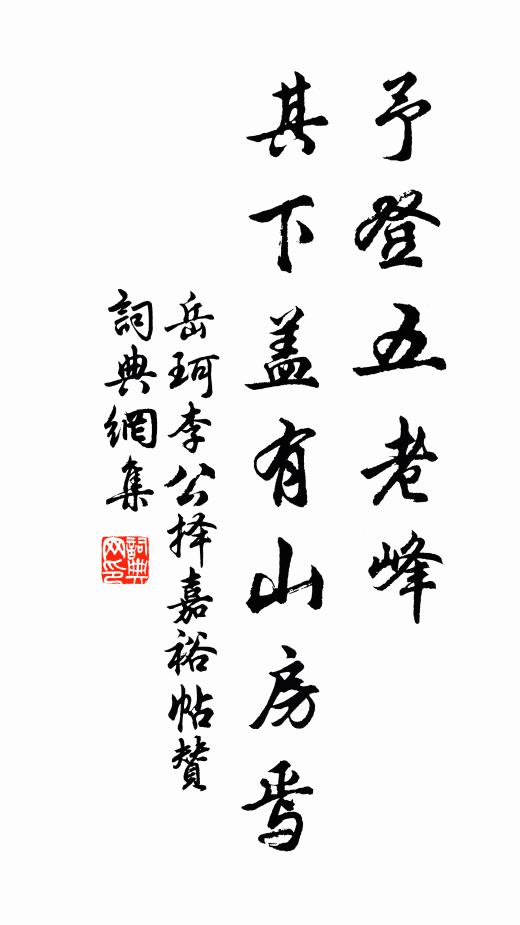 予登五老峰
其下盖有山房焉
岳珂李公择嘉裕帖贊
詞典網集
詞典網印